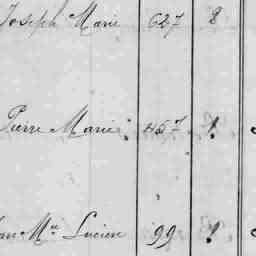 Joseph Marie 627 8
Pierre Marie 457 1
Jean Mie Lucien 99 1